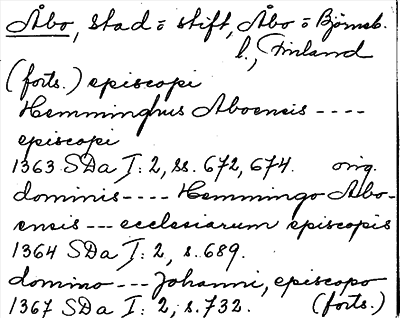 Åbo, stad o stift, Åbo o Björneb.
l., Finland
(forts.) episcopi
Hemminghus Aboensis ----
episcopi
1363 SDa I: 2, ss. 672, 674. orig.
dominis ---- Hemmingo Abo-
ensis --- ecclesiarum episcopis
1364 SDa I: 2, s. 689.
domino --- Johanni, episcopo
1367 SDa I: 2, s. 732. (forts.)